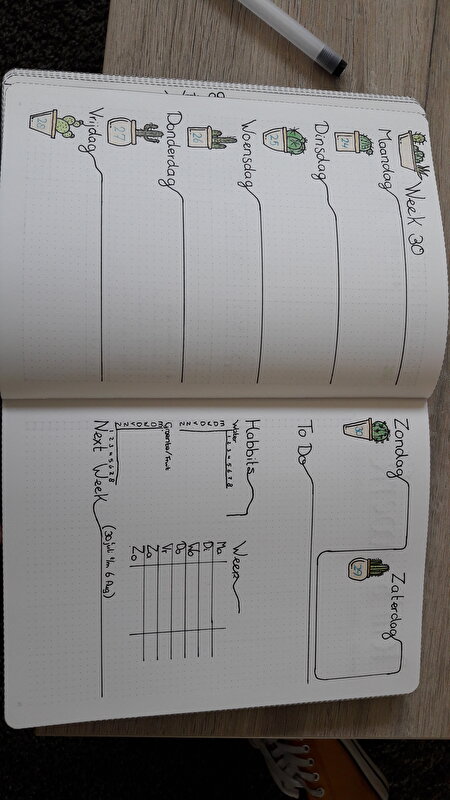 Week 30
Maandag
24
Dinsdag
25
Woensdag
26
Donderdag
27
Vrijdag
28
Zondag
30
Zaterdag
29
To Do
Habbits
Water
1 2 3 4 5 6 7 8
M
D
W
D
V
Z
Z
Groente/Fruit
1 2 3 4 5 6 7 8
M
D
W
D
V
Z
Z
Weer
Ma
Di
Wo
Do
Vr
Za
Zo
Next Week (30 juli t/m 6 Aug)